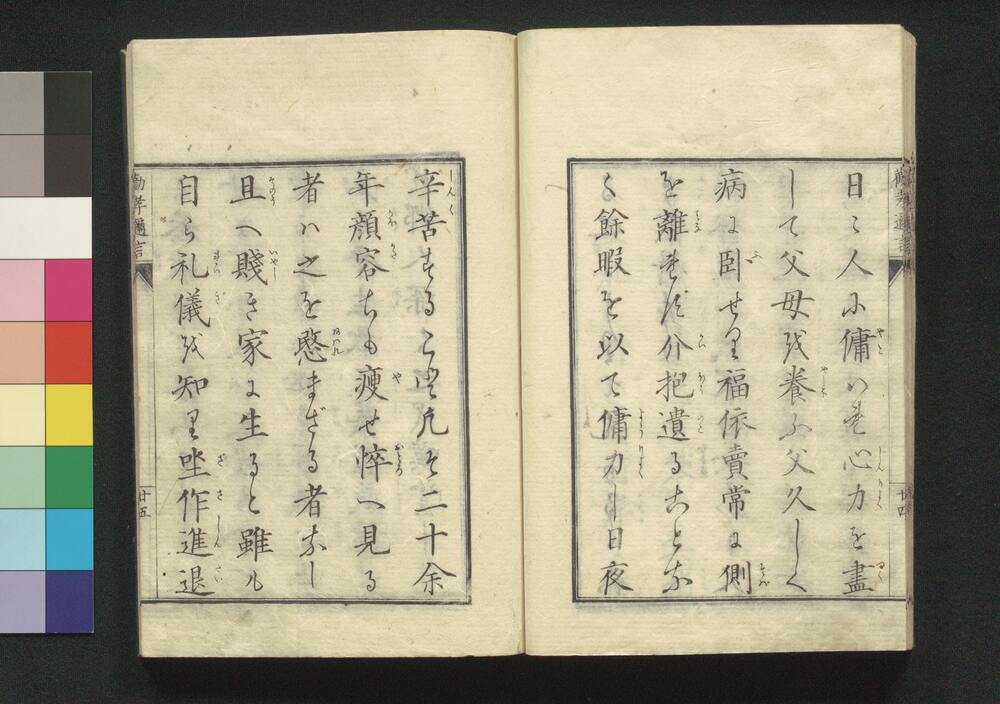 勧孝邇言
廿四
日々人に傭はれ心力を盡
して父母を養ふ父久しく
病に臥せり福依賣常に側
を離れず介抱遺ることな
く餘暇を以て傭力し日夜
辛苦すること凡そ二十余
年顔容ちも痩せ悴へ見る
者ハ之を愍まざる者なし
且へ賤き家に生ると雖も
自ら礼儀を知り坐作進退
勧孝邇言
廿五